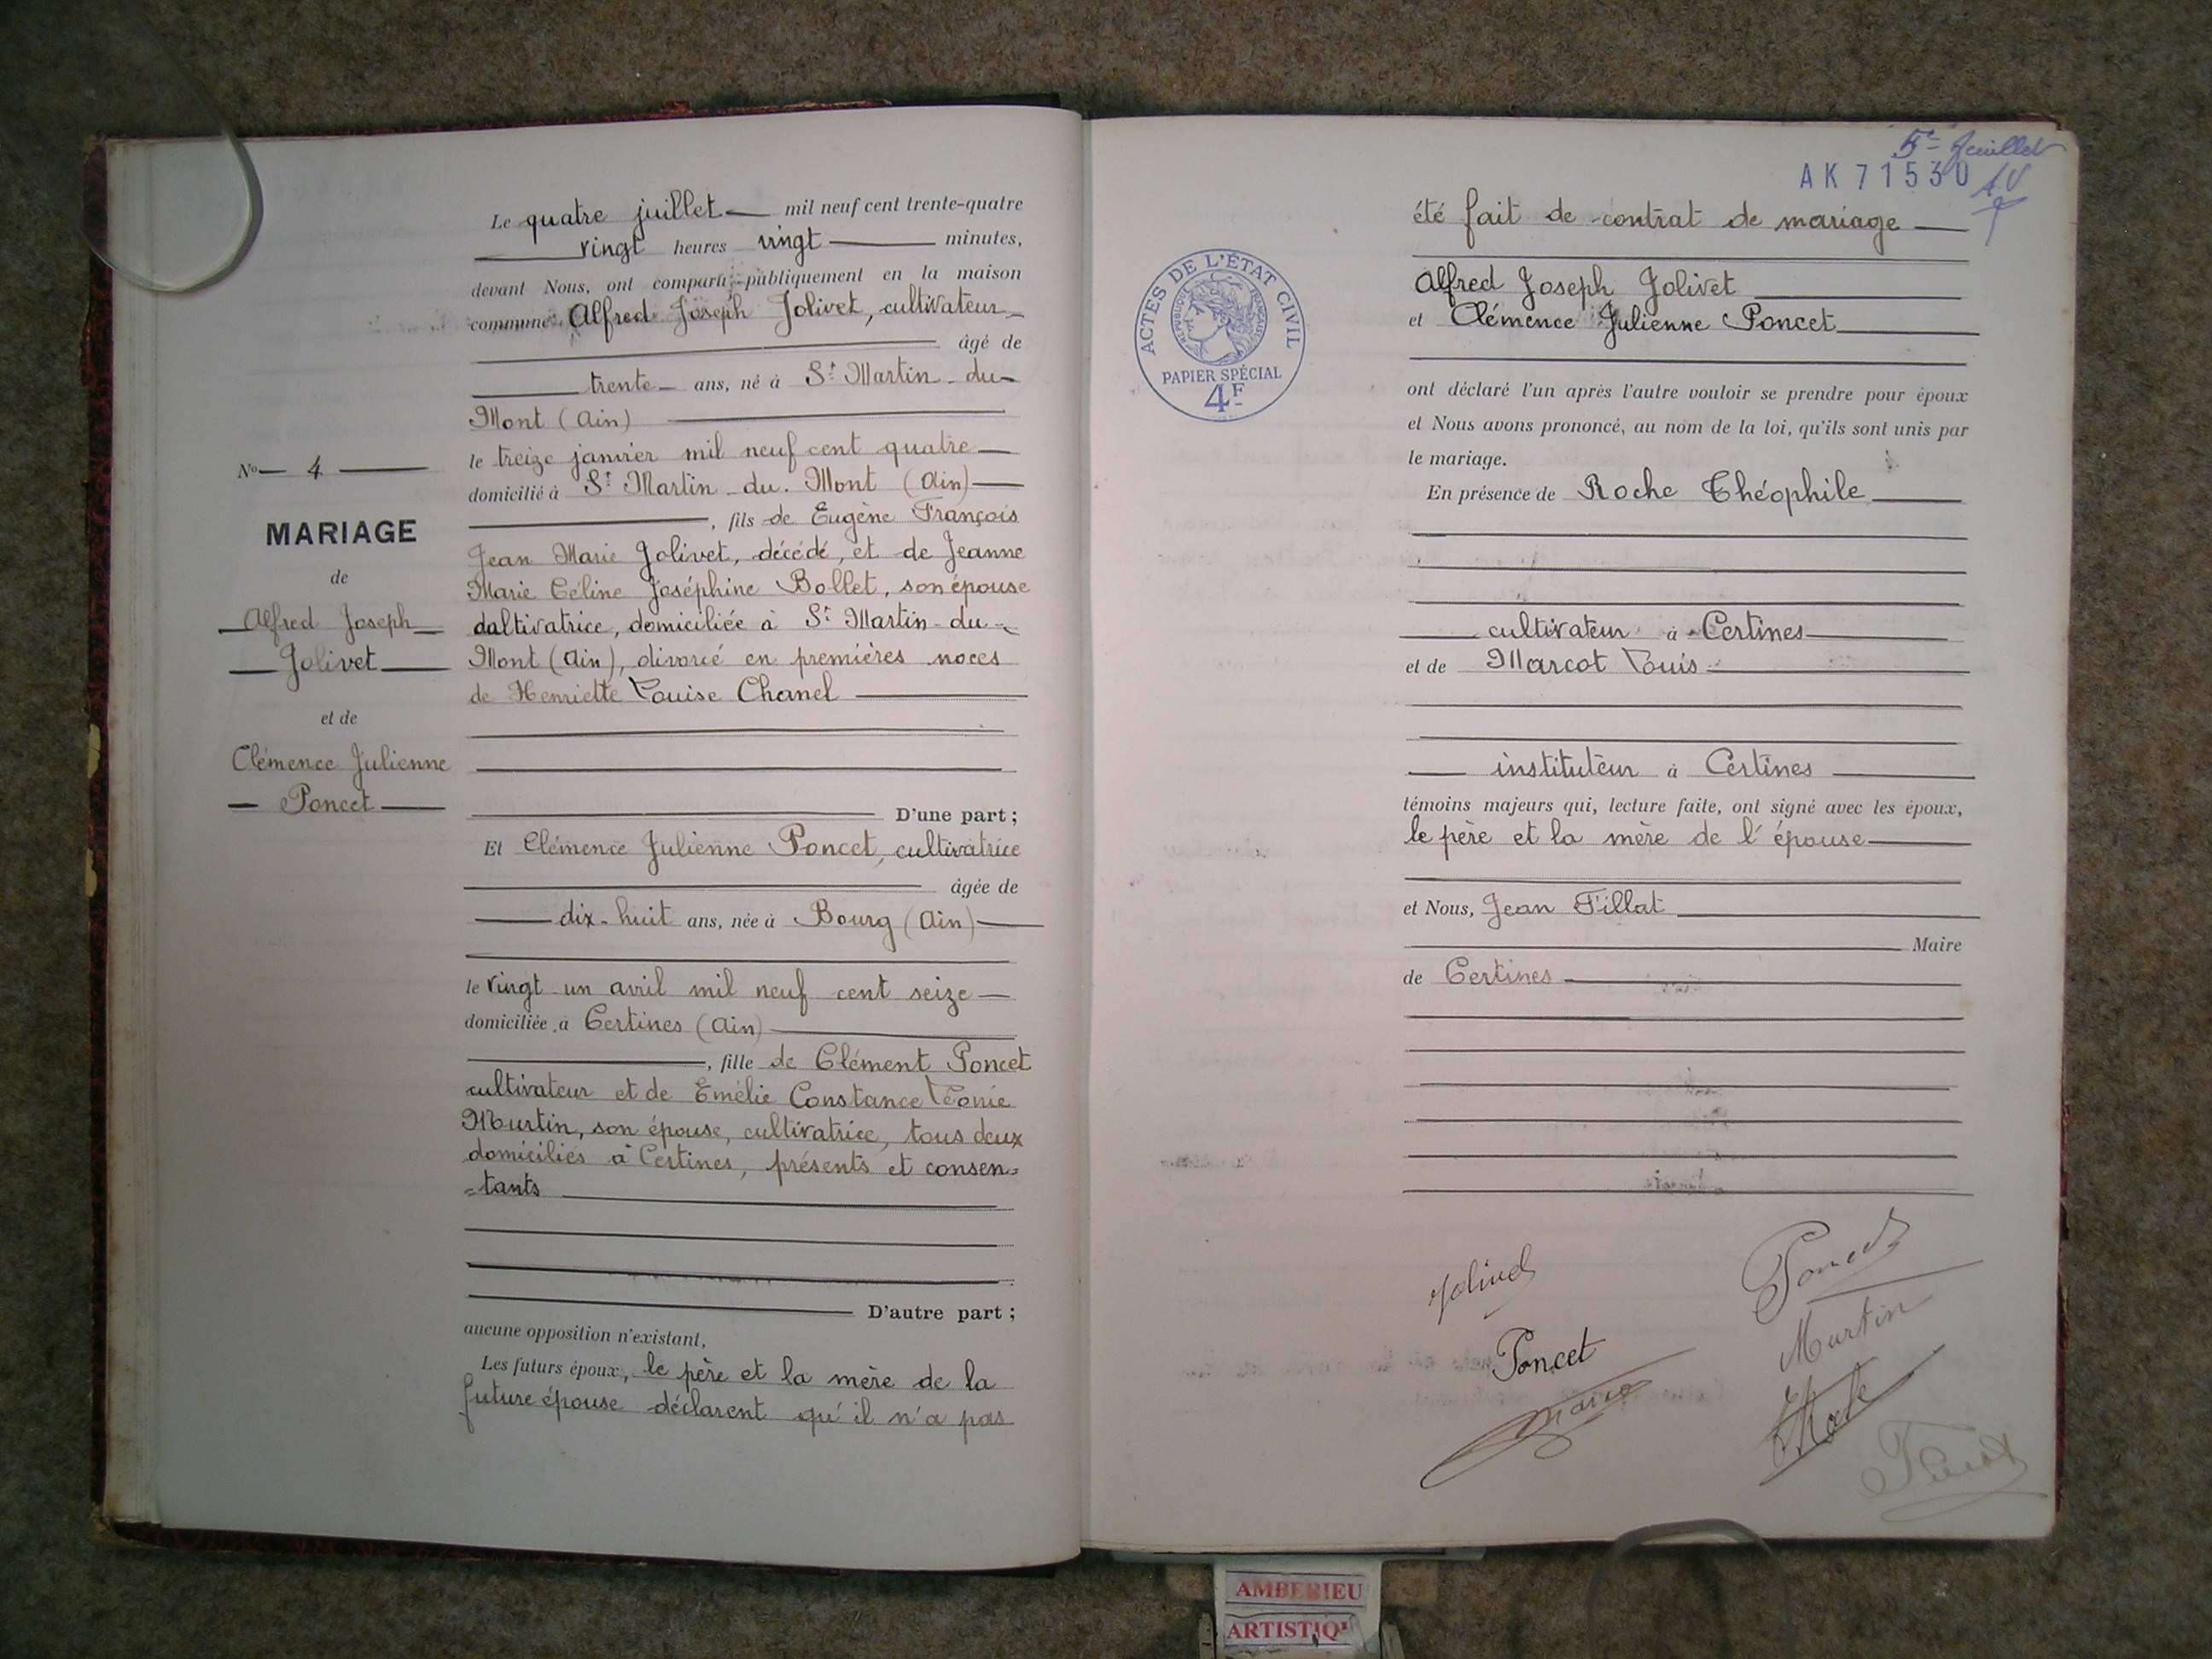 Le quatre juillet mil neuf cent trente-quatre
vingt heures vingt minutes,
devant Nous, ont comparu publiquement en la maison
commune: Alfred Joseph Jolivet, cultivateur
âgé de
trente ans, né à St Martin-du-
Mont (Ain)
le treize janvier mil neuf cent quatre
domicilié à St Martin-du-Mont (Ain)
, fils de Eugène François
Jean Marie Jolivet, décédé, et de Jeanne
Marie Céline Joséphine Bollet, son épouse
daltivatrice, domiciliée à St Martin-du-
Mont (Ain), divorcé en premières noces
de Henriette Louise Chanel
D'une part;
No 4
MARIAGE
de
Alfred Joseph
Jolivet
et de
Clémence Julienne
Poncet
Et Clémence Julienne Poncet, cultivatrice
âgée de
dix-huit ans, née à Bourg (Ain)
le vingt-un avril mil neuf cent seize
domiciliée à Certines (Ain)
, fille de Clément Poncet
cultivateur et de Emélie Constance Léonie
Murtin, son épouse, cultivatrice, tous deux
domiciliés à Certines, présents et consen=
=tants
D'autre part;
aucune opposition n'existant,
Les futurs époux, le père et la mère de la
future épouse déclarent qu'il n'a pas
5e feuillet
AK 71530
été fait de contrat de mariage
ACTES DE L'ÉTAT CIVIL
RÉPUBLIQUE FRANÇAISE
PAPIER SPÉCIAL
4F
Alfred Joseph Jolivet
et Clémence Julienne Poncet
ont déclaré l'un après l'autre vouloir se prendre pour époux
et Nous avons prononcé, au nom de la loi, qu'ils sont unis par
le mariage.
En présence de Roche Théophile
cultivateur à Certines
et de Marcot Louis
instituteur à Certines
témoins majeurs qui, lecture faite, ont signé avec les époux,
le père et la mère de l'épouse
et Nous, Jean Tillat
Maire
de Certines
Jolivet
Poncet
Poncet
Murtin
AMBERIEU
ARTISTIQ